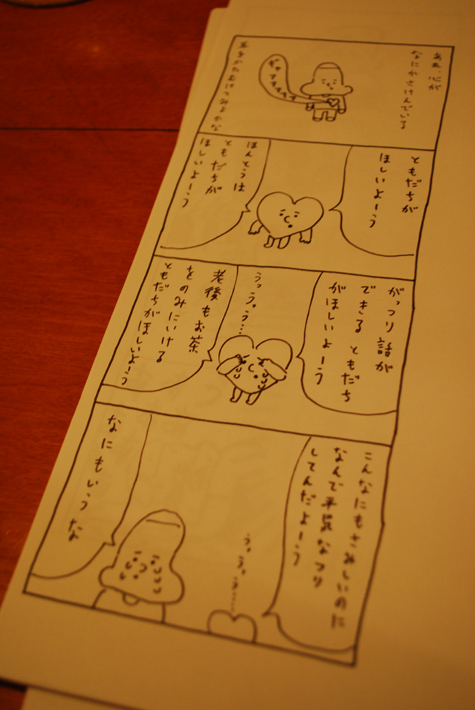 ああ、心が
なにかさけんでいる
ギャアアアアアア
耳をかたむけてみるかな
ともだちが
ほしいよーう
ほんとうは
ともだちが
ほしいよーう
がっつり話が
できるともだち
がほしいよーう
うっうっう…
老後もお茶
をのみにいける
ともだちがほしいよーう
こんなにもさみしいのに
なんで平気なフリ
してんだよーう
うっうっう……
なにもいうな